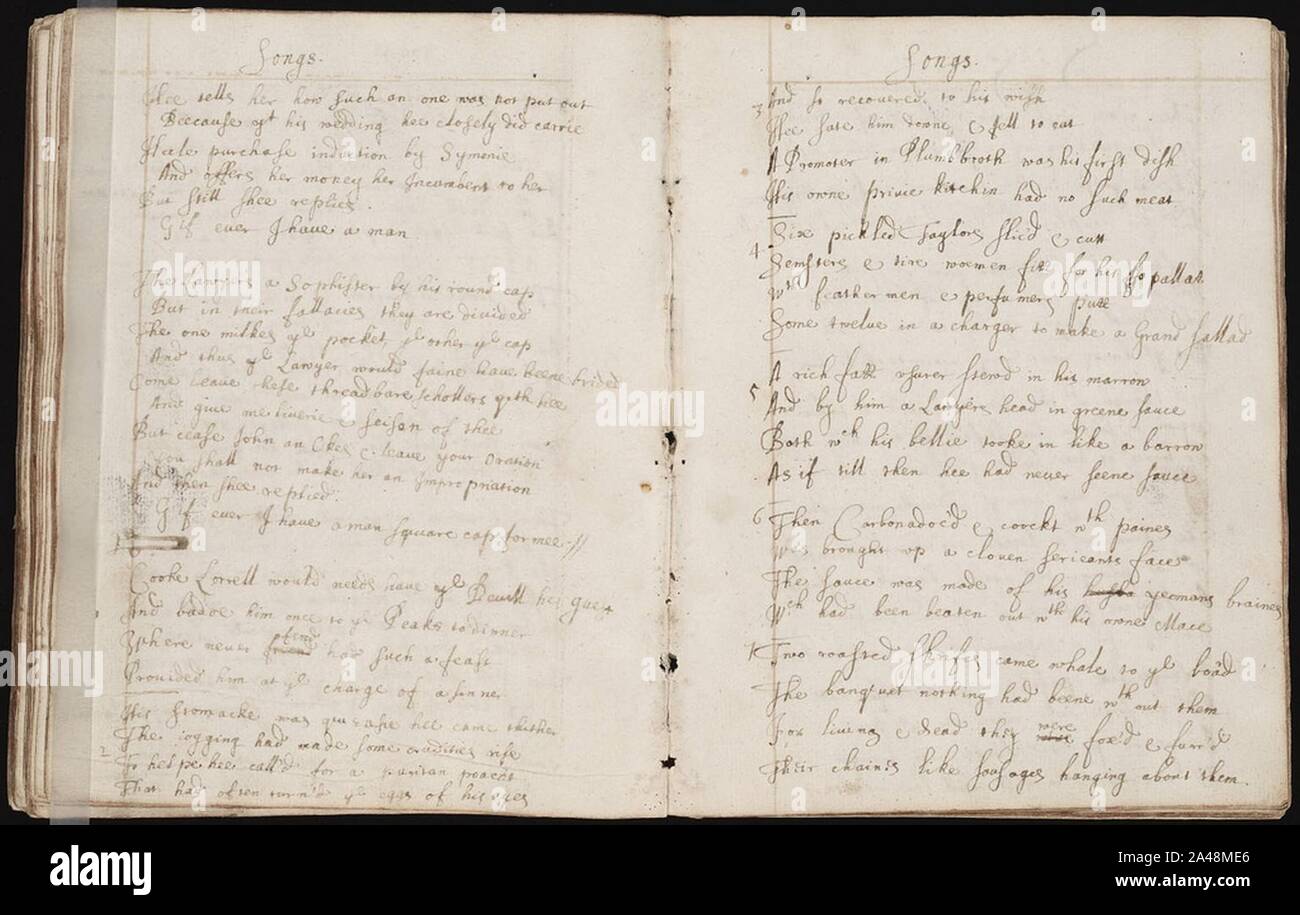 Songs.
Hee tells her how such an one was not put out
Beecause yt his wedding hee closely did carrie
Heele purchase induction by Symonie
And offers her money her Incumbent to her
But still shee replies.
G if ever I have a man

The Lawyers a Sophister by his round cap
But in their fallacies they are divided
The one milkes ye pocket, ye other ye cap
And thus ye Lawyer would faine have beene brided
Come leave these threadbare schollers qth hee
And give me liverie & seisen of thee
But cease John an Okes & leave your Oration
You shall not make her an Impropriation
And then shee replied
G if ever I have a man square cap for mee.//

Cooke Lorrell would needs have ye Devill his guest
1 And badde him once to ye Peake to dinner
Where never friend fend had such a feast
Provided him at ye charge of a sinner
His stomacke was queasie hee came thither
2 The jogging had made some crudities rise
To helpe hee call'd for a puritan poacht
That had often turn'd ye eggs of his eyes

Songs.
3 And so recovered to his wish
Hee sate him downe & fell to eat
A Promoter in Plumbroth was his first dish
His owne privie kitchin had no such meat
4 Six pickled Taylors slic'd & cutt
Semsters & tire woemen fitt for his pallatt
Wth feathermen & perfumers putt
Some twelve in a charger to make a Grand sallad
5 A rich fatt usurer stewd in his marrow
And by him a Lawyers head in greene sauce
Both wch his bellie tooke in like a barrow
As if till then hee had never seene sauce
6 Then Carbonadoe'd & coockt wth paines
Was brought up a cloven serieants face
The sauce was made of his yeomans braines
Wch had been beaten out wth his owne Mace
7 Two roasted sherifes came whole to ye board
The banquet nothing had beene wth out them
For living & dead they were fox'd & furr'd
Their chaines like sousages hanging about them.

alamy
alamy
Image ID: 2A48ME6
www.alamy.com